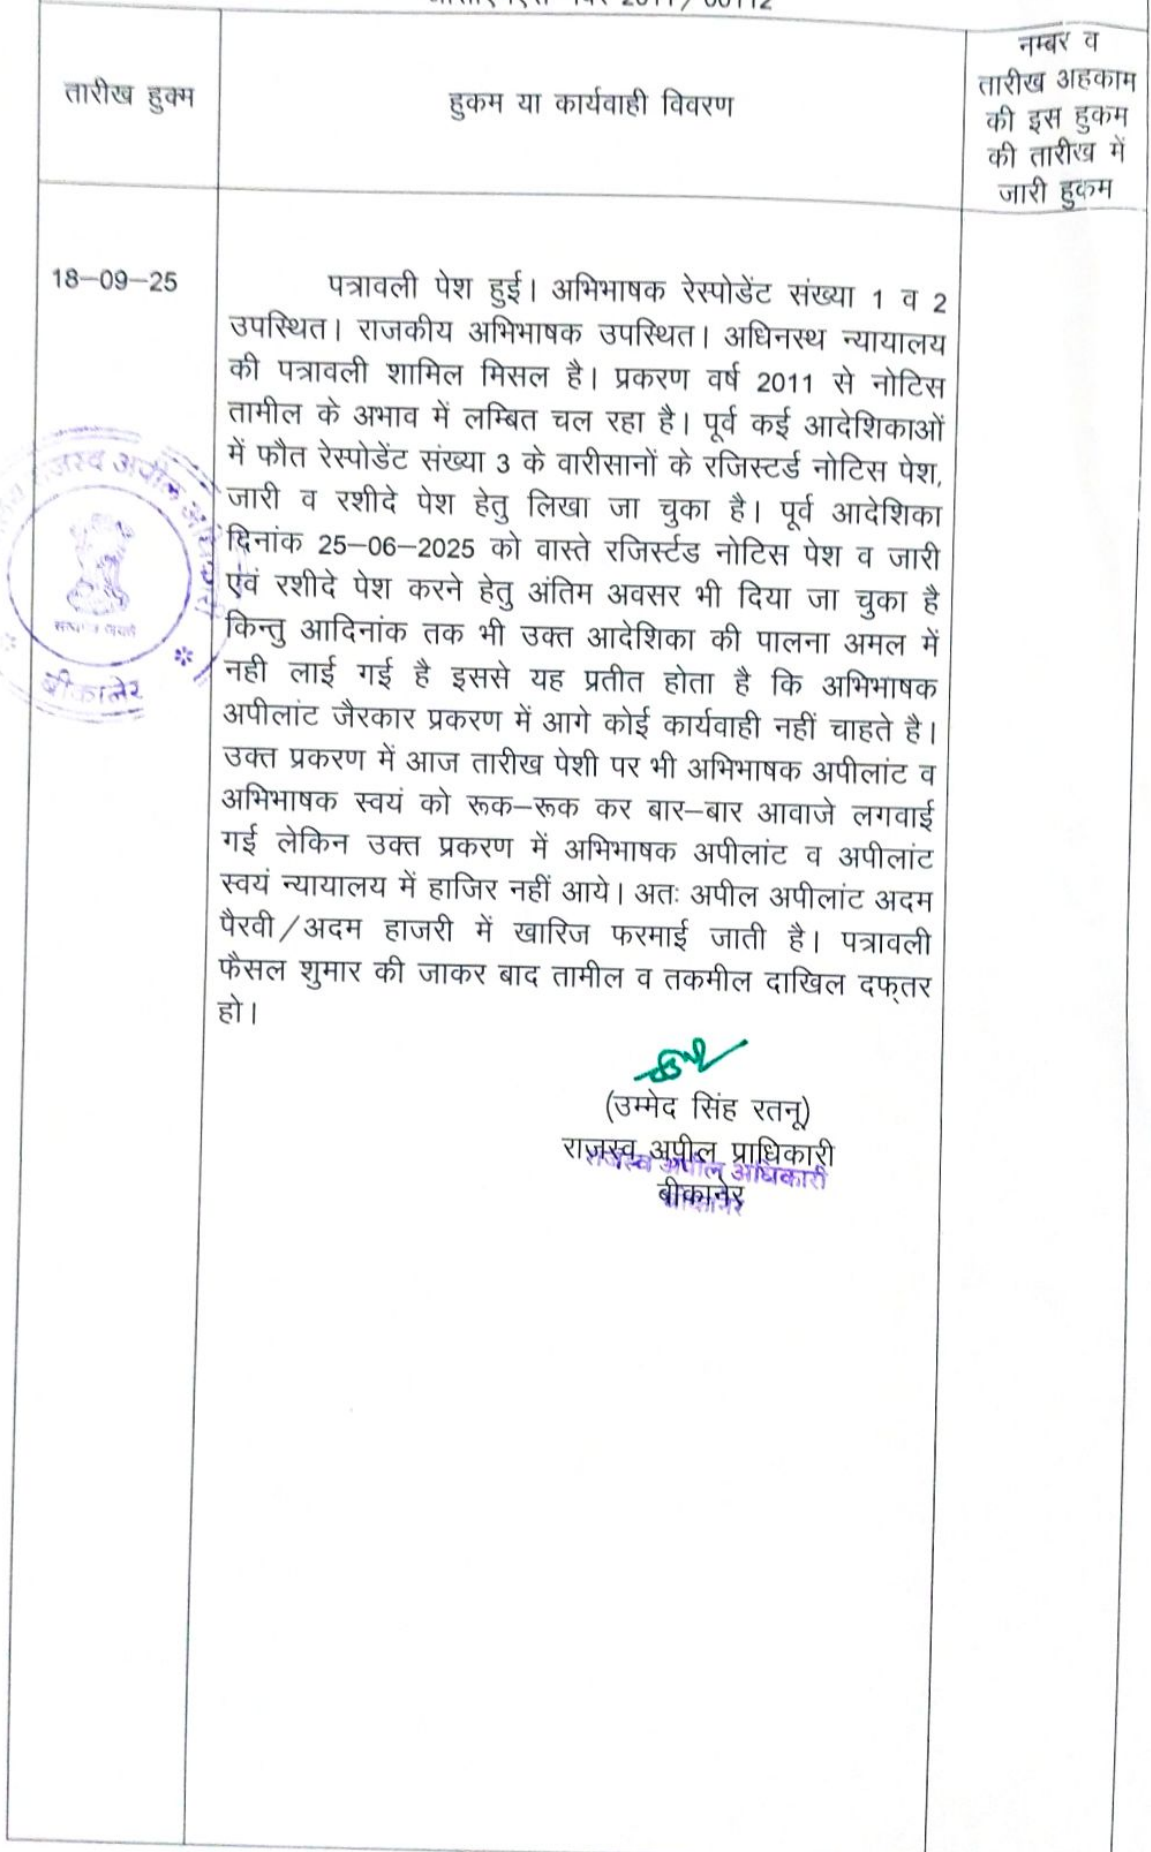 2011/00112
तारीख हुक्म
हुकम या कार्यवाही विवरण
नम्बर व
तारीख अहकाम
की इस हुकम
की तारीख में
जारी हुकम
18–09–25
पत्रावली पेश हुई। अभिभाषक रेस्पोडेंट संख्या 1 व 2
उपस्थित। राजकीय अभिभाषक उपस्थित। अधिनस्थ न्यायालय
की पत्रावली शामिल मिसल है। प्रकरण वर्ष 2011 से नोटिस
तामील के अभाव में लम्बित चल रहा है। पूर्व कई आदेशिकाओं
में फौत रेस्पोडेंट संख्या 3 के वारीसानों के रजिस्टर्ड नोटिस पेश,
जारी व रशीदे पेश हेतु लिखा जा चुका है। पूर्व आदेशिका
दिनांक 25–06–2025 को वास्ते रजिर्स्टड नोटिस पेश व जारी
एवं रशीदे पेश करने हेतु अंतिम अवसर भी दिया जा चुका है
किन्तु आदिनांक तक भी उक्त आदेशिका की पालना अमल में
नही लाई गई है इससे यह प्रतीत होता है कि अभिभाषक
अपीलांट जैरकार प्रकरण में आगे कोई कार्यवाही नहीं चाहते है।
उक्त प्रकरण में आज तारीख पेशी पर भी अभिभाषक अपीलांट व
अभिभाषक स्वयं को रूक–रूक कर बार–बार आवाजे लगवाई
गई लेकिन उक्त प्रकरण में अभिभाषक अपीलांट व अपीलांट
स्वयं न्यायालय में हाजिर नहीं आये। अतः अपील अपीलांट अदम
पैरवी/अदम हाजरी में खारिज फरमाई जाती है। पत्रावली
फैसल शुमार की जाकर बाद तामील व तकमील दाखिल दफ्तर
हो।
राजस्व अपील अधिकारी
बीकानेर
(उम्मेद सिंह रतनू)
राजस्व अपील प्राधिकारी
बीकानेर
राजस्व अपील अधिकारी
बीकानेर